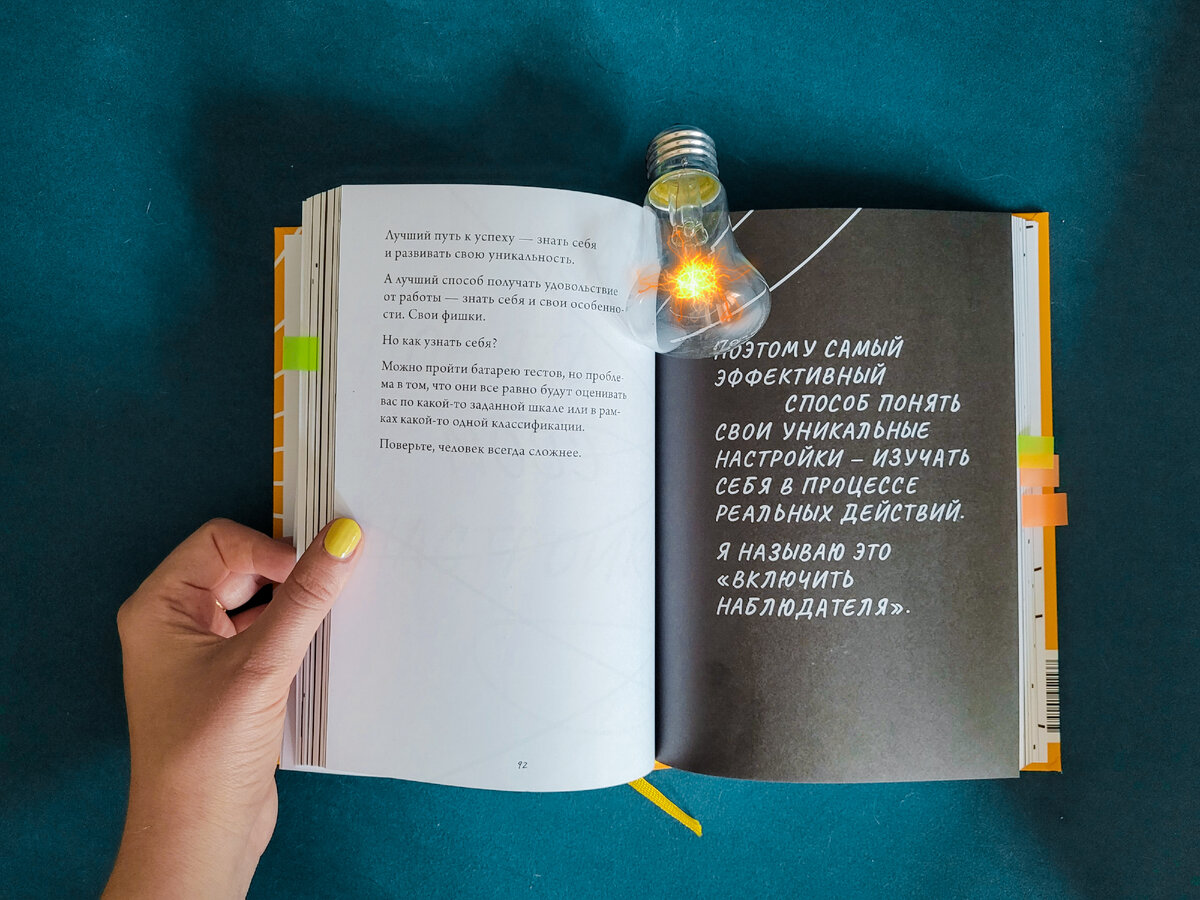 Лучший путь к успеху — знать себя
и развивать свою уникальность.
А лучший способ получать удовольствие
от работы — знать себя и свои особенно-
сти. Свои фишки.
Но как узнать себя?
Можно пройти батарею тестов, но пробле-
ма в том, что они все равно будут оценивать
вас по какой-то заданной шкале или в рам-
ках какой-то одной классификации.
Поверьте, человек всегда сложнее.
92
ПОЭТОМУ САМЫЙ
ЭФФЕКТИВНЫЙ
СПОСОБ ПОНЯТЬ
СВОИ УНИКАЛЬНЫЕ
НАСТРОЙКИ – ИЗУЧАТЬ
СЕБЯ В ПРОЦЕССЕ
РЕАЛЬНЫХ ДЕЙСТВИЙ.
Я НАЗЫВАЮ ЭТО
«ВКЛЮЧИТЬ
НАБЛЮДАТЕЛЯ».